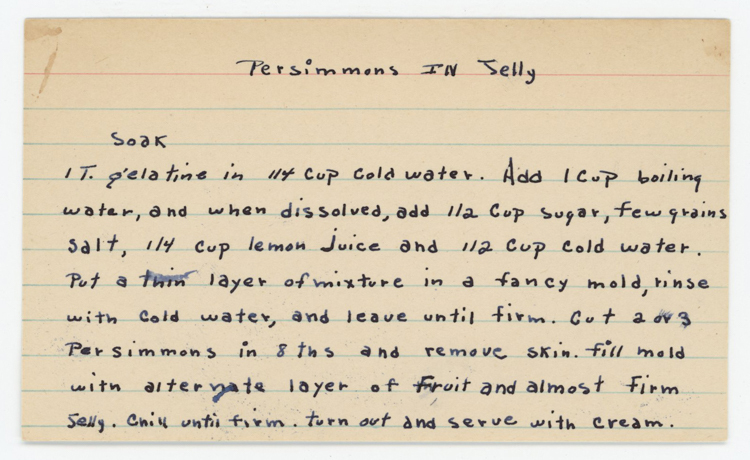 Persimmons IN Jelly
Soak
1 T. gelatine in 1/4 Cup Cold water. Add 1 Cup boiling
water, and when dissolved, add 1/2 Cup sugar, few grains
Salt, 1/4 cup lemon Juice and 1/2 Cup Cold water.
Put a thin layer of mixture in a fancy mold, rinse
with Cold water, and leave until firm. Cut 2 or 3
Persimmons in 8ths and remove skin. fill mold
with alternate layer of Fruit and almost firm
Jelly. Chill until firm. turn out and serve with cream.